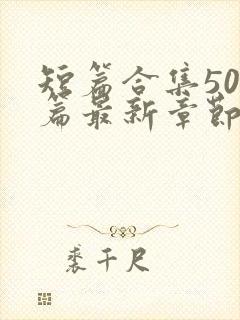 短篇合集50
篇最新章节
裘千尺